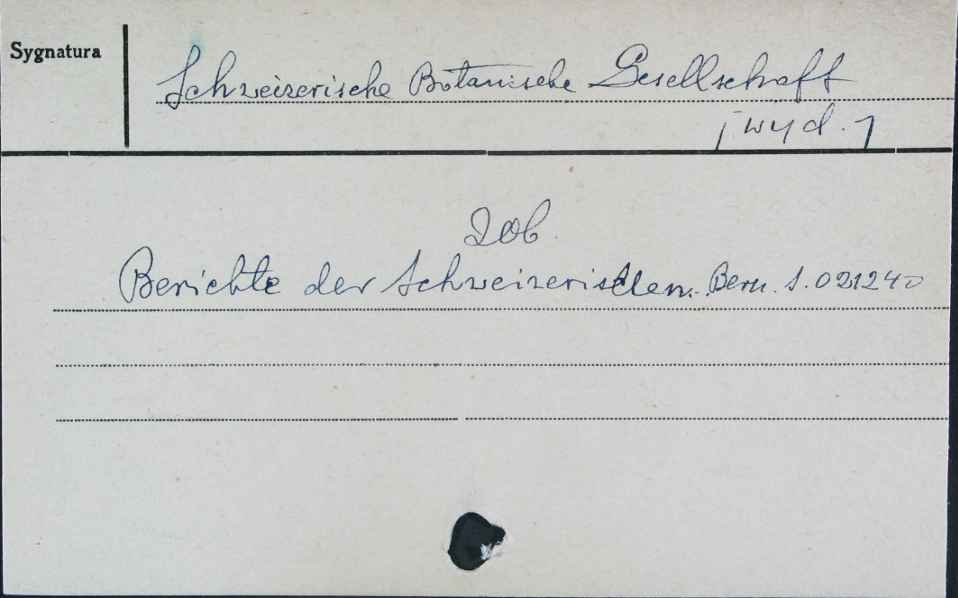 Sygnatura
Schweizerische Botanische Gesellschaft
[wyd.]
Zob.
Berichte der Schweizerischen.. Bern. S. 021240